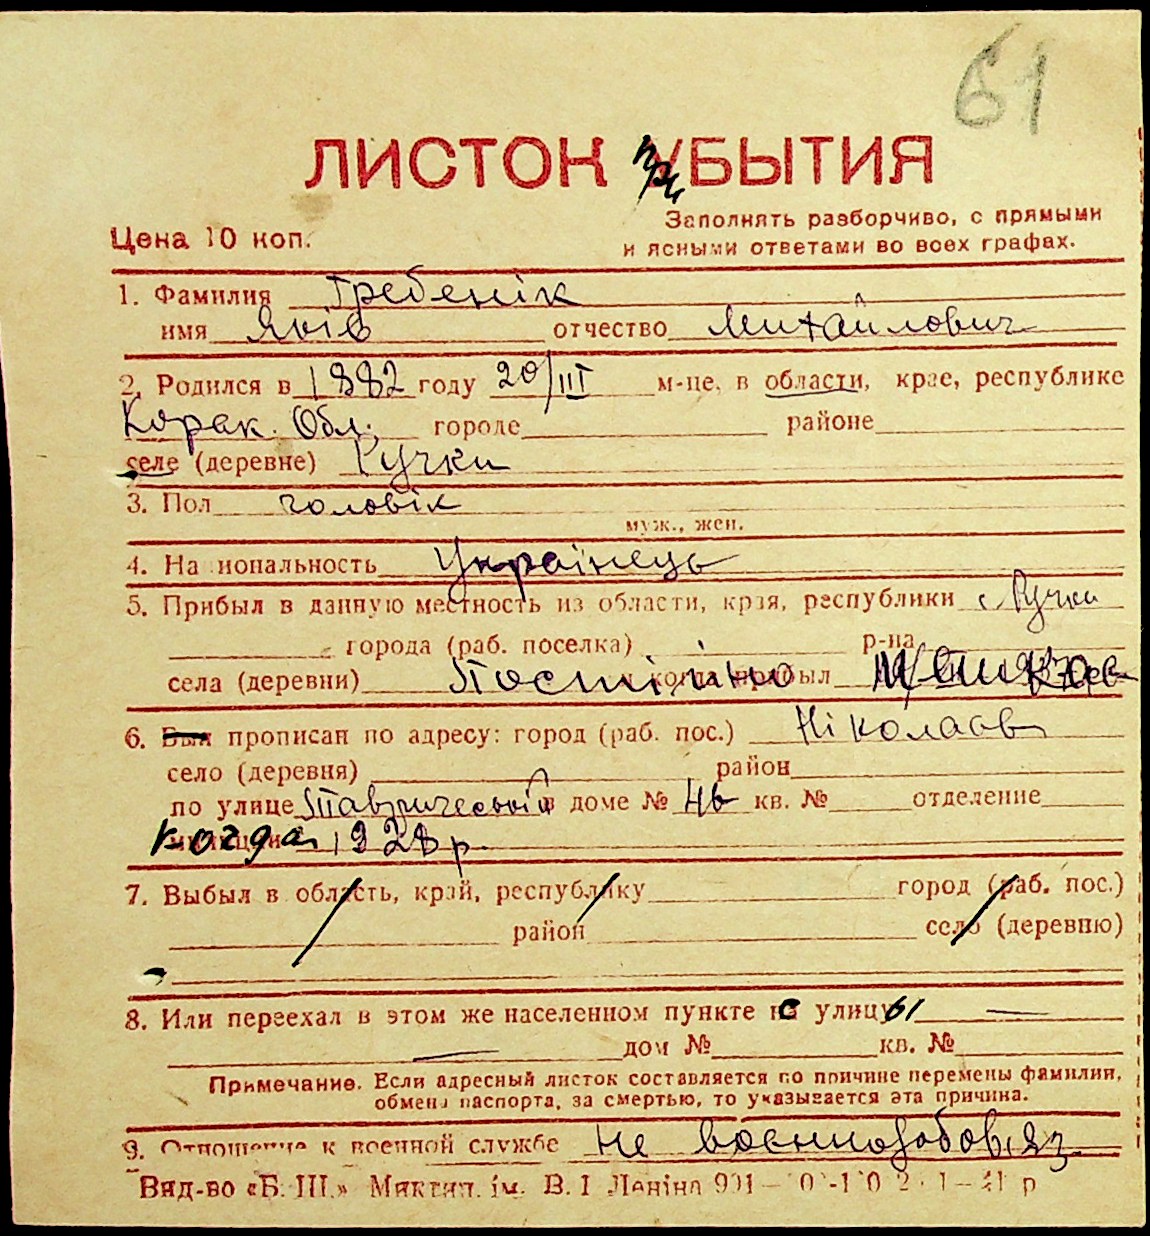 61
ЛИСТОК приБЫТИЯ
Цена 10 коп. Заполнять разборчиво, с прямыми
и ясными ответами во всех графах.
1. Фамилия Гребенік
имя Яків отчество Михайлович
2. Родился в 1882 году 20/III м-це, в области, крае, республике
Обл. городе районе
селе (деревне) Ручки
3. Пол чоловік
муж., жен.
4. Национальность Українець
5. Прибыл в данную местность из области, края, республики с Ручки
города (раб. поселка) р-на
села (деревни) Постійно когда прибыл
6. прописан по адресу: город (раб. пос.) Ніколаєв
село (деревня) район
по улице Тавричеській доме № 46 кв. № отделение
когда 1928 р.
7. Выбыл в область, край, республику город (раб. пос.)
район село (деревню)
8. Или переехал в этом же населенном пункте с улицы —
— дом № кв. №
Примечание. Если адресный листок составляется по причине перемены фамилии,
обмена паспорта, за смертью, то указывается эта причина.
9. Отношение к военной службе Не воєннозобов'яз
Вид-во «Б. Ш.» Миктип. ім. В. І Леніна